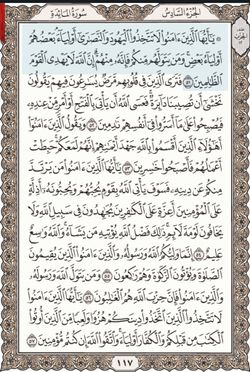 الجزء السادس سورة المائدة
۞ يَٰٓأَيُّهَا ٱلَّذِينَ ءَامَنُوا۟ لَا تَتَّخِذُوا۟ ٱلْيَهُودَ وَٱلنَّصَٰرَىٰٓ أَوْلِيَآءَ بَعْضُهُمْ
أَوْلِيَآءُ بَعْضٍ وَمَن يَتَوَلَّهُم مِّنكُمْ فَإِنَّهُۥ مِنْهُمْ إِنَّ ٱللَّهَ لَا يَهْدِى ٱلْقَوْمَ
ٱلظَّٰلِمِينَ ٥١ فَتَرَى ٱلَّذِينَ فِى قُلُوبِهِم مَّرَضٌ يُسَٰرِعُونَ فِيهِمْ يَقُولُونَ
نَخْشَىٰٓ أَن تُصِيبَنَا دَآئِرَةٌ فَعَسَى ٱللَّهُ أَن يَأْتِىَ بِٱلْفَتْحِ أَوْ أَمْرٍ مِّنْ عِندِهِۦ
فَيُصْبِحُوا۟ عَلَىٰ مَآ أَسَرُّوا۟ فِىٓ أَنفُسِهِمْ نَٰدِمِينَ ٥٢ وَيَقُولُ ٱلَّذِينَ ءَامَنُوٓا۟
أَهَٰٓؤُلَآءِ ٱلَّذِينَ أَقْسَمُوا۟ بِٱللَّهِ جَهْدَ أَيْمَٰنِهِمْ إِنَّهُمْ لَمَعَكُمْ حَبِطَتْ
أَعْمَٰلُهُمْ فَأَصْبَحُوا۟ خَٰسِرِينَ ٥٣ يَٰٓأَيُّهَا ٱلَّذِينَ ءَامَنُوا۟ مَن يَرْتَدَّ
مِنكُمْ عَن دِينِهِۦ فَسَوْفَ يَأْتِى ٱللَّهُ بِقَوْمٍ يُحِبُّهُمْ وَيُحِبُّونَهُۥٓ أَذِلَّةٍ
عَلَى ٱلْمُؤْمِنِينَ أَعِزَّةٍ عَلَى ٱلْكَٰفِرِينَ يُجَٰهِدُونَ فِى سَبِيلِ ٱللَّهِ وَلَا
يَخَافُونَ لَوْمَةَ لَآئِمٍ ذَٰلِكَ فَضْلُ ٱللَّهِ يُؤْتِيهِ مَن يَشَآءُ وَٱللَّهُ وَٰسِعٌ
عَلِيمٌ ٥٤ إِنَّمَا وَلِيُّكُمُ ٱللَّهُ وَرَسُولُهُۥ وَٱلَّذِينَ ءَامَنُوا۟ ٱلَّذِينَ يُقِيمُونَ
ٱلصَّلَوٰةَ وَيُؤْتُونَ ٱلزَّكَوٰةَ وَهُمْ رَٰكِعُونَ ٥٥ وَمَن يَتَوَلَّ ٱللَّهَ وَرَسُولَهُۥ
وَٱلَّذِينَ ءَامَنُوا۟ فَإِنَّ حِزْبَ ٱللَّهِ هُمُ ٱلْغَٰلِبُونَ ٥٦ يَٰٓأَيُّهَا ٱلَّذِينَ ءَامَنُوا۟
لَا تَتَّخِذُوا۟ ٱلَّذِينَ ٱتَّخَذُوا۟ دِينَكُمْ هُزُوًا وَلَعِبًا مِّنَ ٱلَّذِينَ أُوتُوا۟
ٱلْكِتَٰبَ مِن قَبْلِكُمْ وَٱلْكُفَّارَ أَوْلِيَآءَ وَٱتَّقُوا۟ ٱللَّهَ إِن كُنتُم مُّؤْمِنِينَ ٥٧
١١٧